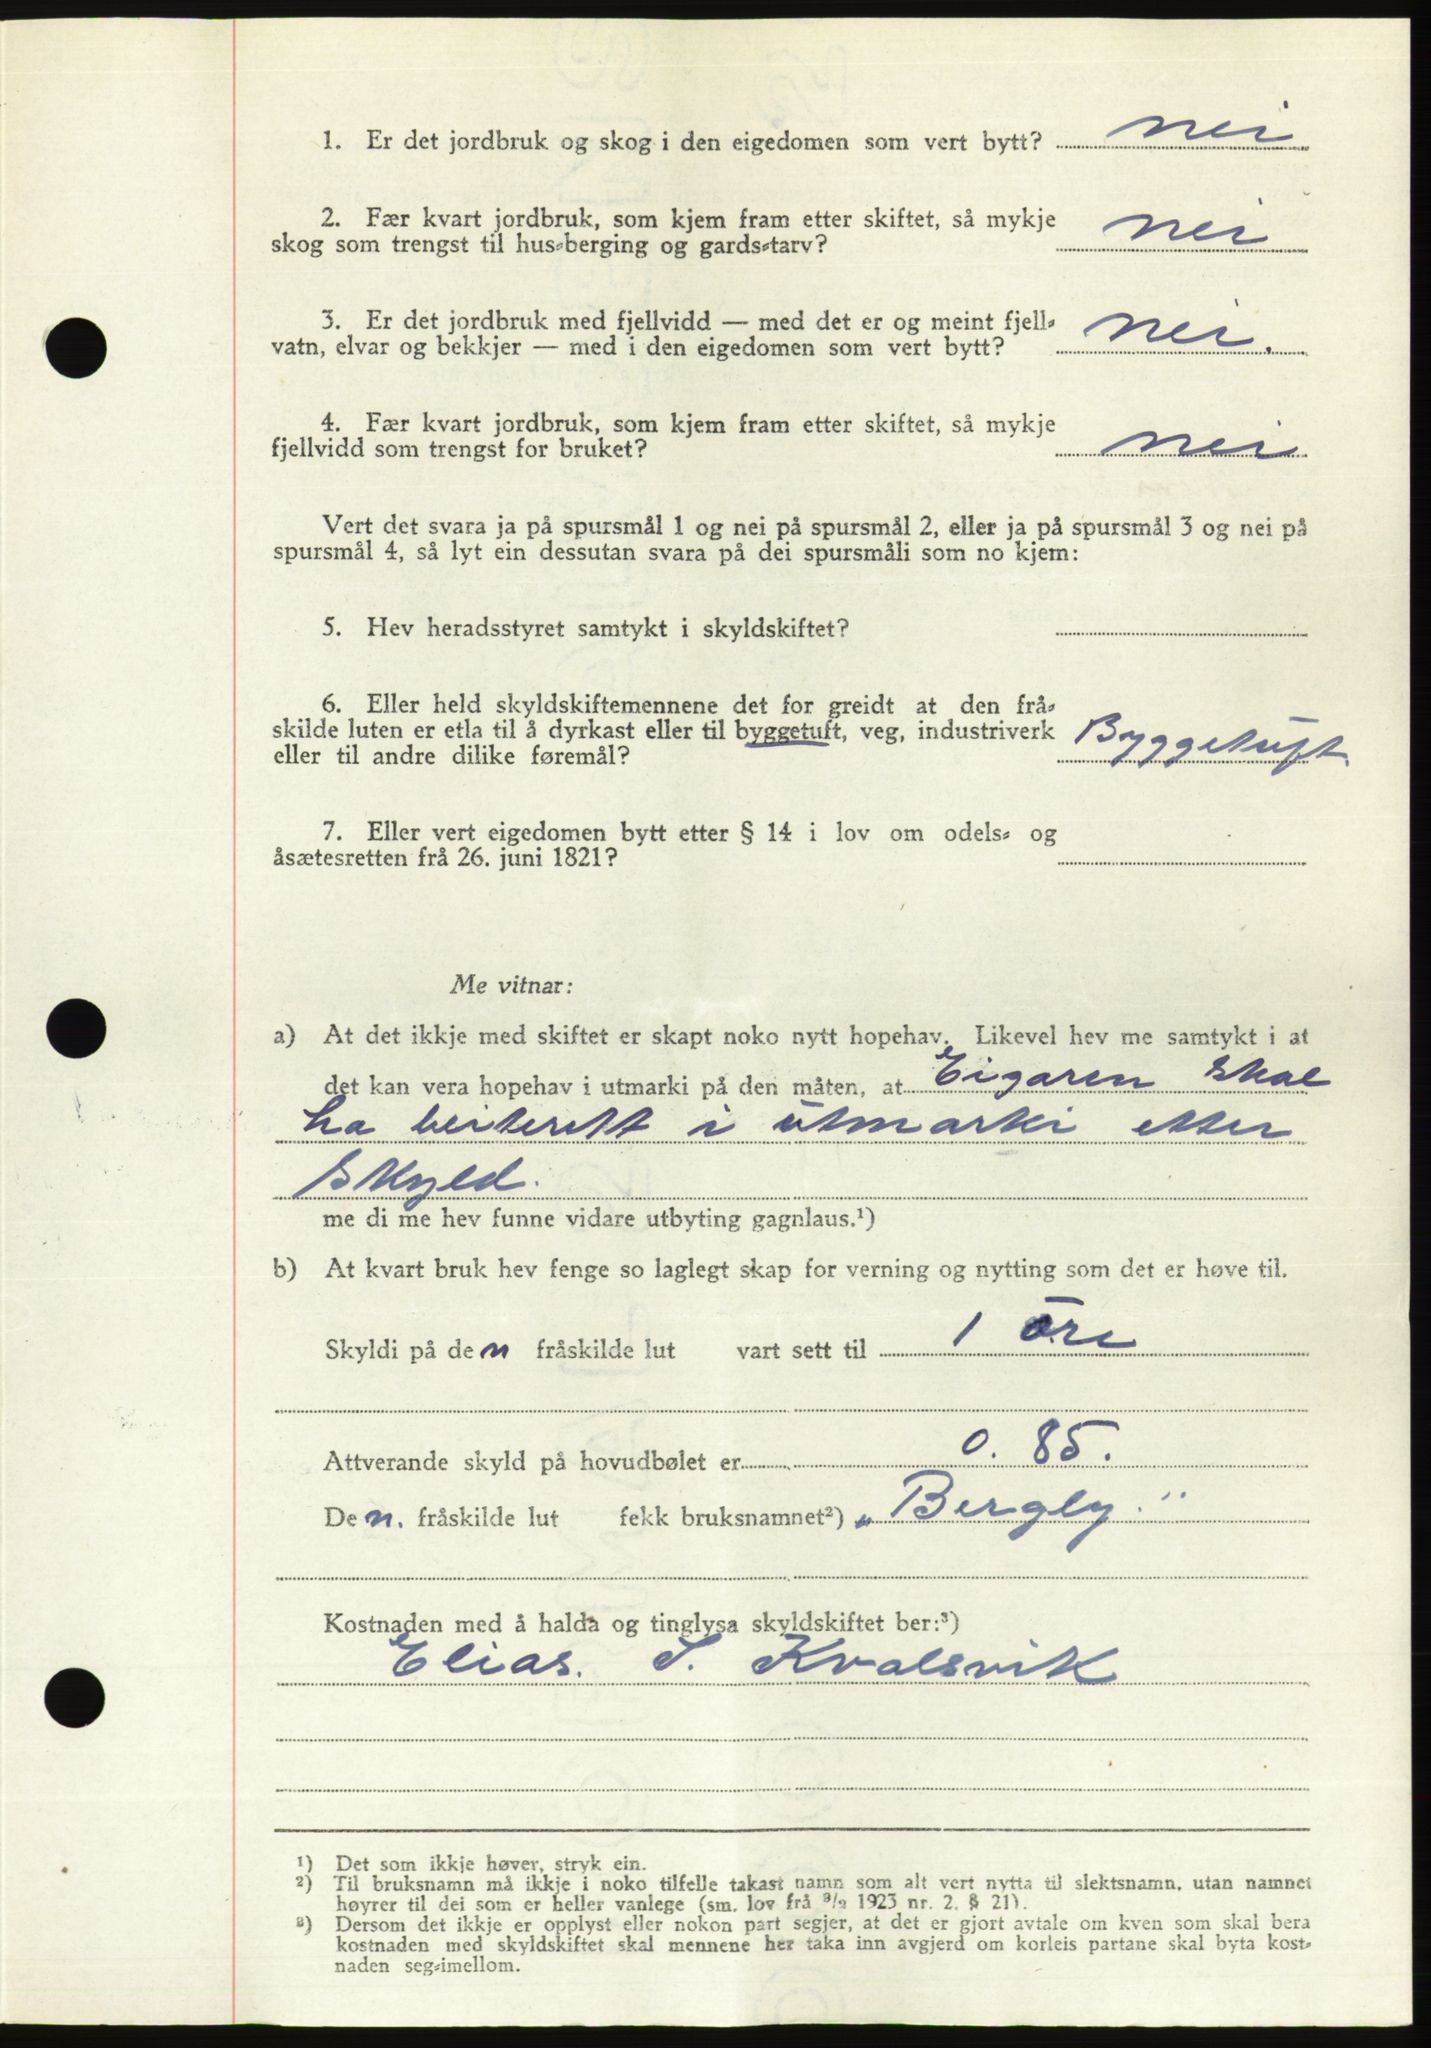 1. Er det jordbruk og skog i den eigedomen som vert bytt? nei
2. Fær kvart jordbruk, som kjem fram etter skiftet, så mykje
skog som trengst til hus-berging og gards-tarv? nei
3. Er det jordbruk med fjellvidd — med det er og meint fjell-
vatn, elvar og bekkjer — med i den eigedomen som vert bytt? nei.
4. Fær kvart jordbruk, som kjem fram etter skiftet, så mykje
fjellvidd som trengst for bruket? nei
Vert det svara ja på spursmål 1 og nei på spursmål 2, eller ja på spursmål 3 og nei på
spursmål 4, så lyt ein dessutan svara på dei spursmåli som no kjem:
5. Hev heradsstyret samtykt i skyldskiftet?
6. Eller held skyldskiftemennene det for greidt at den frå-
skilde luten er etla til å dyrkast eller til byggetuft, veg, industriverk
eller til andre dilike føremål? Byggetuft.
7. Eller vert eigedomen bytt etter § 14 i lov om odels- og
åsætesretten frå 26. juni 1821?
Me vitnar:
a) At det ikkje med skiftet er skapt noko nytt hopehav. Likevel hev me samtykt i at
det kan vera hopehav i utmarki på den måten, at Eigaren skal
ha beiterett i utmarki etter
skyld.
me di me hev funne vidare utbyting gagnlaus.¹)
b) At kvart bruk hev fenge so laglegt skap for verning og nytting som det er høve til.
Skyldi på den fråskilde lut vart sett til 1 öre
Attverande skyld på hovudbølet er 0.85.
Den. fråskilde lut fekk bruksnamnet²) „Bergly."
Kostnaden med å halda og tinglysa skyldskiftet ber:³)
Elias. S. Kvalsvik
¹) Det som ikkje høver, stryk ein.
²) Til bruksnamn må ikkje i noko tilfelle takast namn som alt vert nytta til slektsnamn, utan namnet
høyrer til dei som er heller vanlege (sm. lov frå ⁹/₂ 1923 nr. 2. § 21).
³) Dersom det ikkje er opplyst eller nokon part segjer, at det er gjort avtale om kven som skal bera
kostnaden med skyldskiftet skal mennene her taka inn avgjerd om korleis partane skal byta kost-
naden seg-imellom.